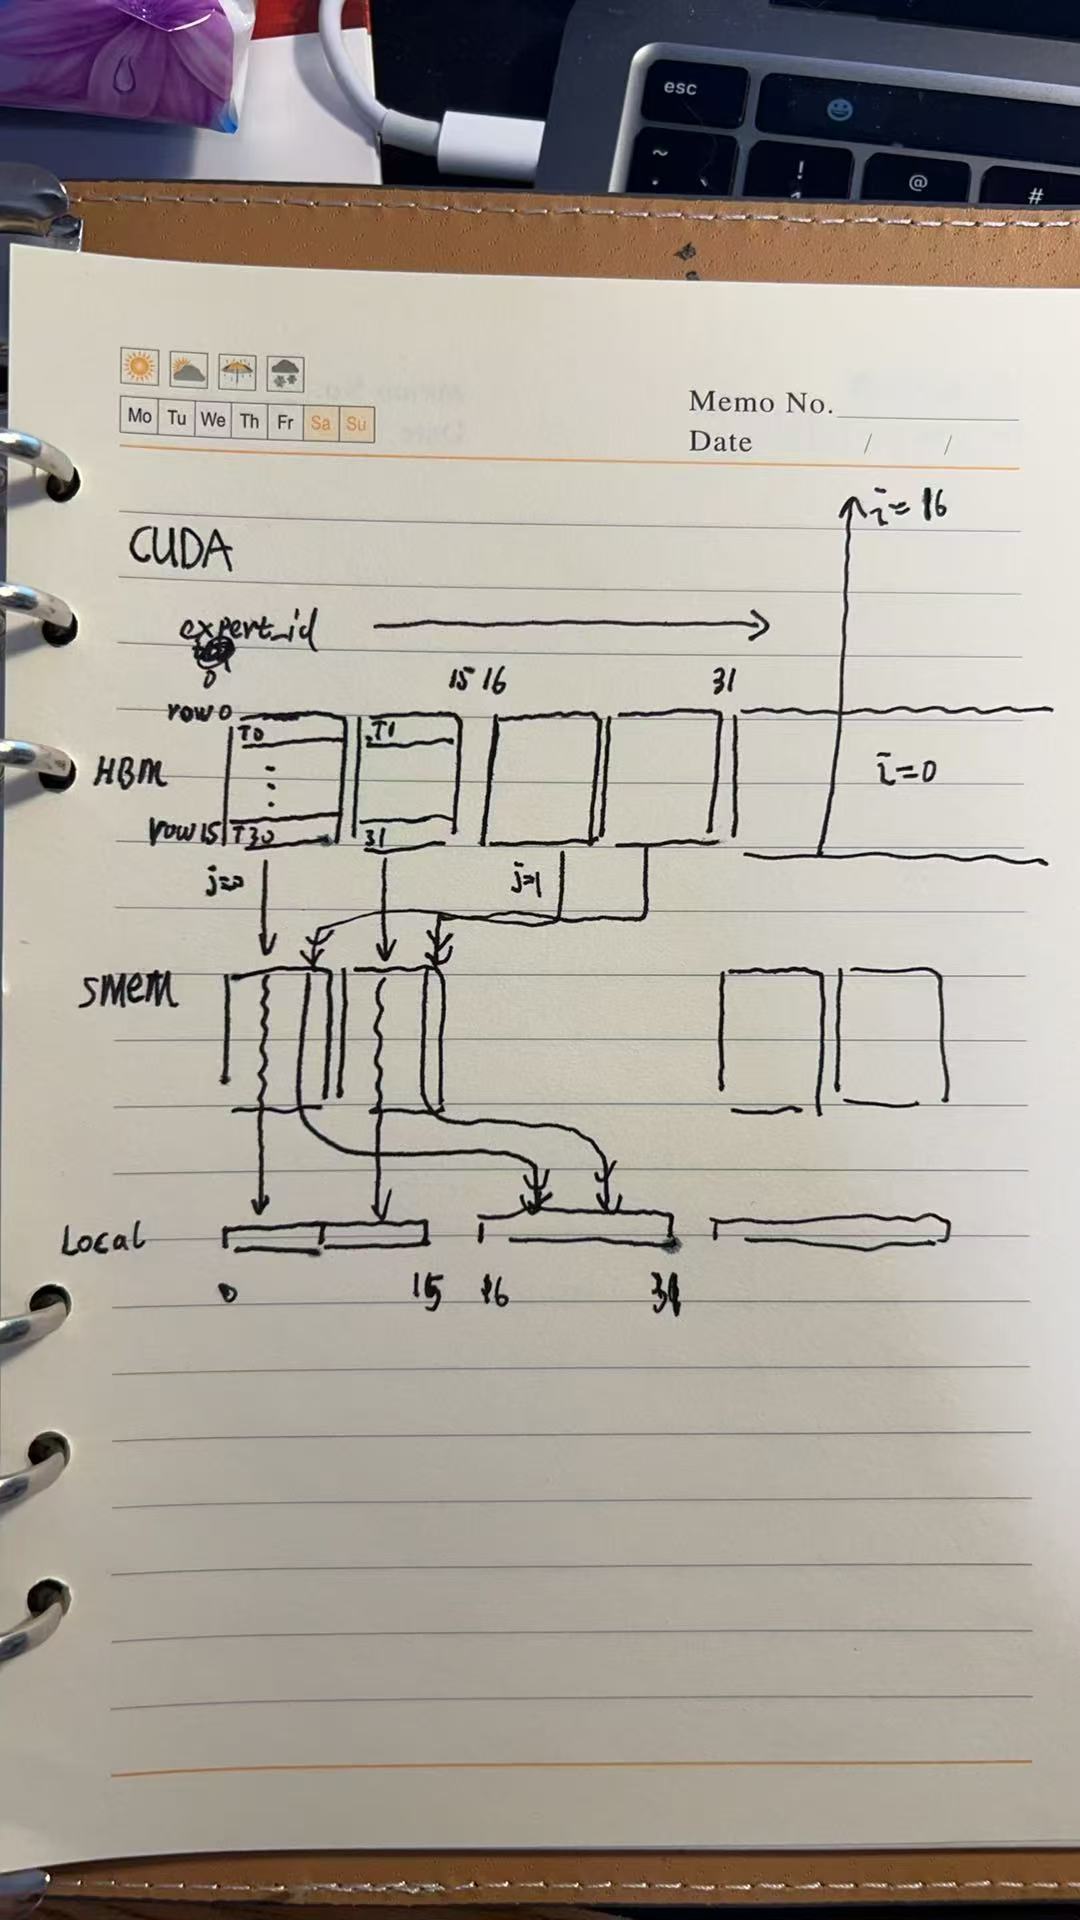 esc
~
!
@
#
Mo Tu We Th Fr Sa Su
Memo No.
Date / /
i=16
CUDA
expert_id
0 15 16 31
row 0
T0 T1
HBM
i=0
row 15 T30 31
j=0 j=1
SMEM
Local
0 15 16 31